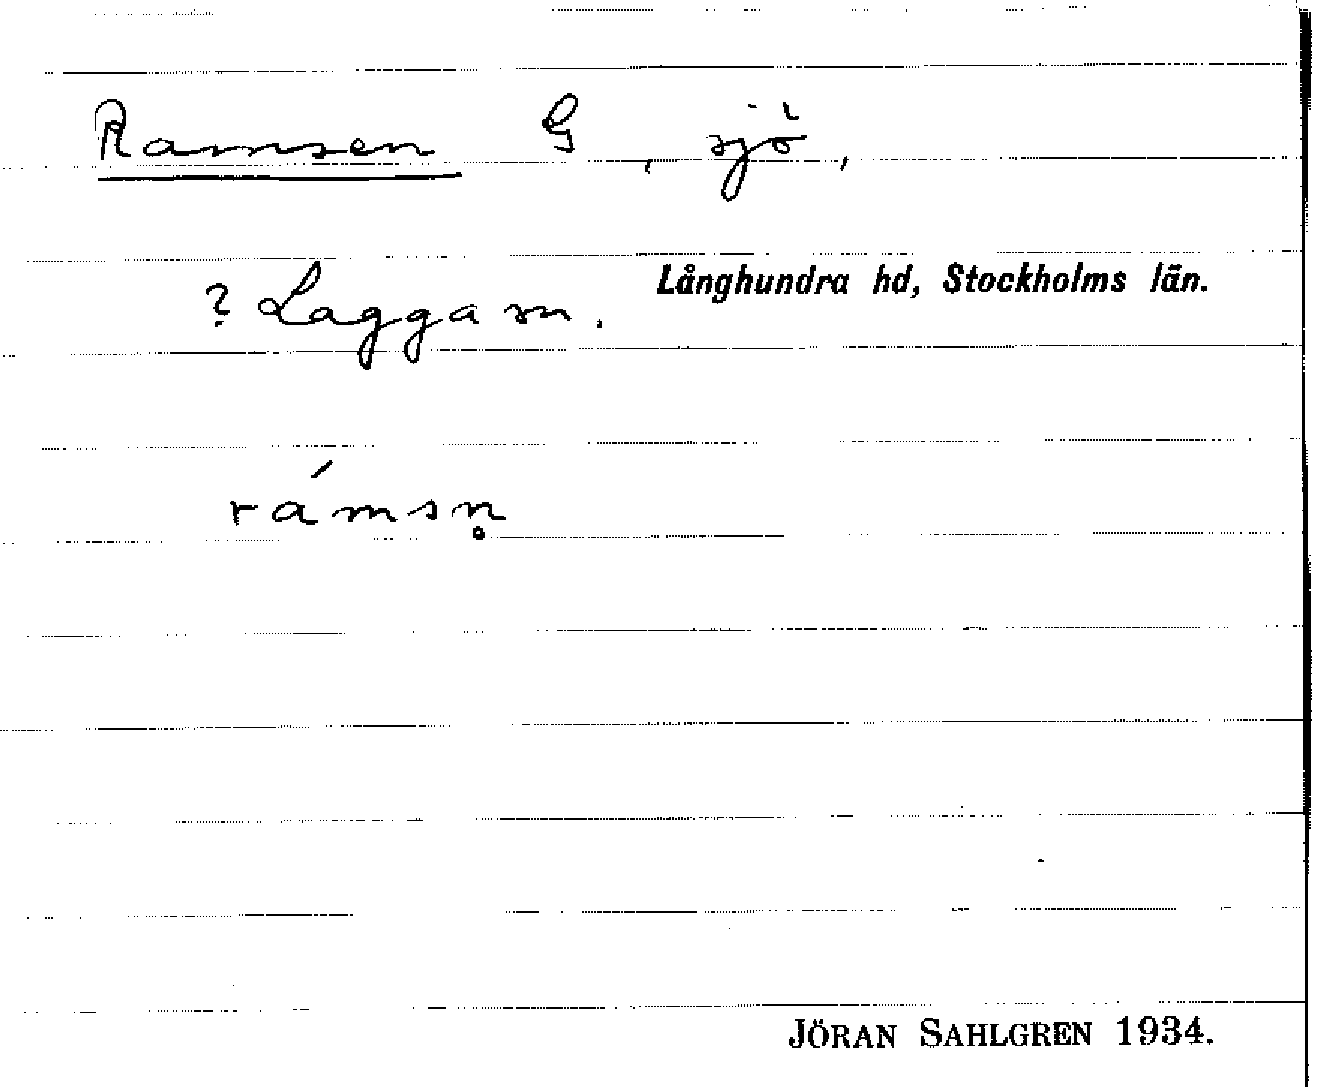 Ramsen G, sjö,
? Lagga sn. Långhundra hd, Stockholms län.
rámsn̥
JÖRAN SAHLGREN 1934.